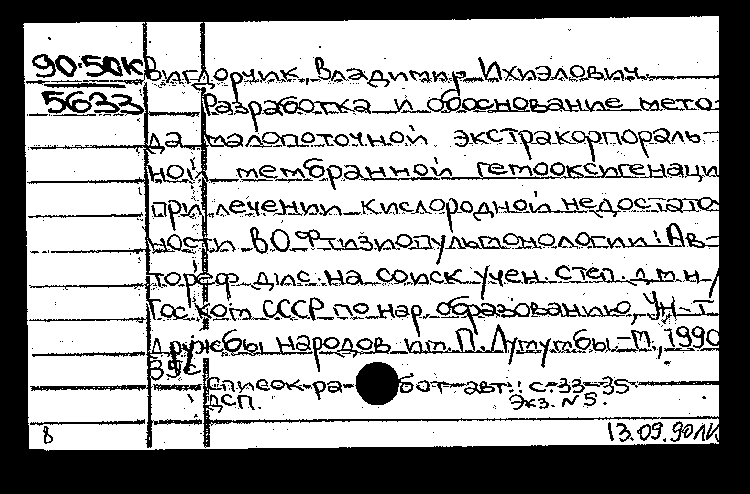 90-50К Вигдорчик, Владимир Ихиэлович.
5633 Разработка и обоснование мето-
да малопоточной экстракорпораль-
ной мембранной гемооксигенаци
при лечении кислородной недостато
ности в О Фтизиопульмонологии: Ав-
тореф дис. на соиск учен. степ. д.м.н /
Гос. ком СССР по нар. образованию, Ун-т
дружбы народов им. П. Лумумбы.-М., 1990
35с
Список ра-бот авт.: с-33-35
ДСП. Экз. N 5.
8 13.09.90